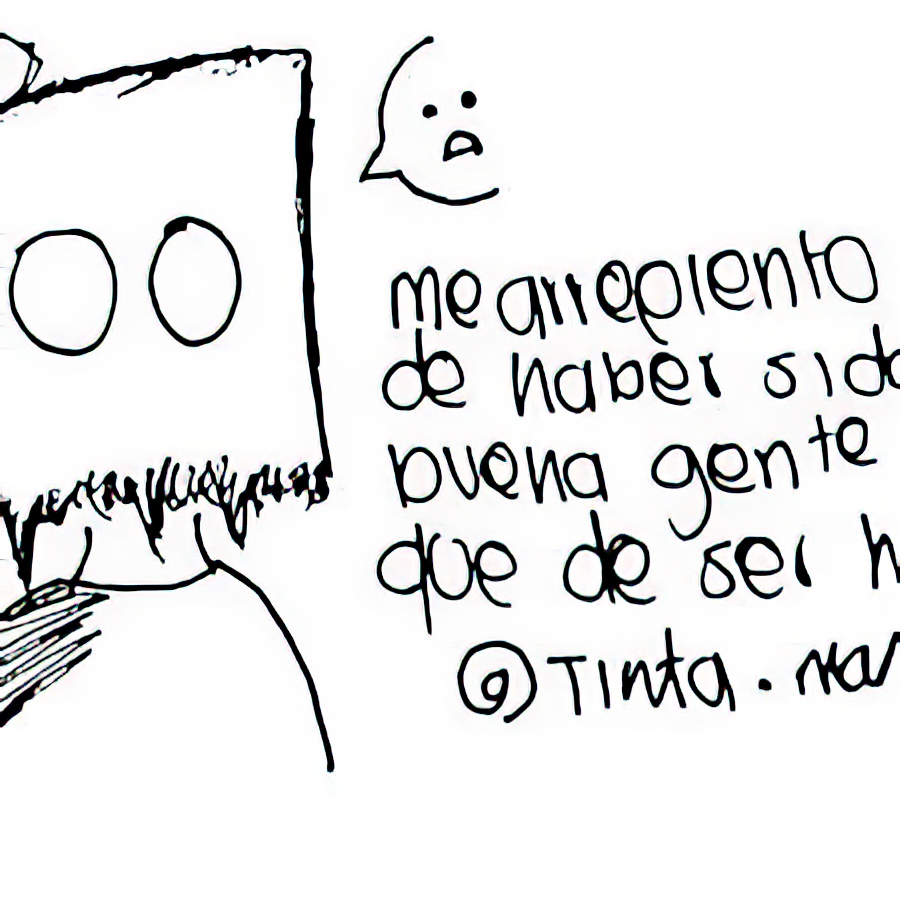 me arrepiento
de haber sido
buena gente
que de ser h
@Tinta.nar